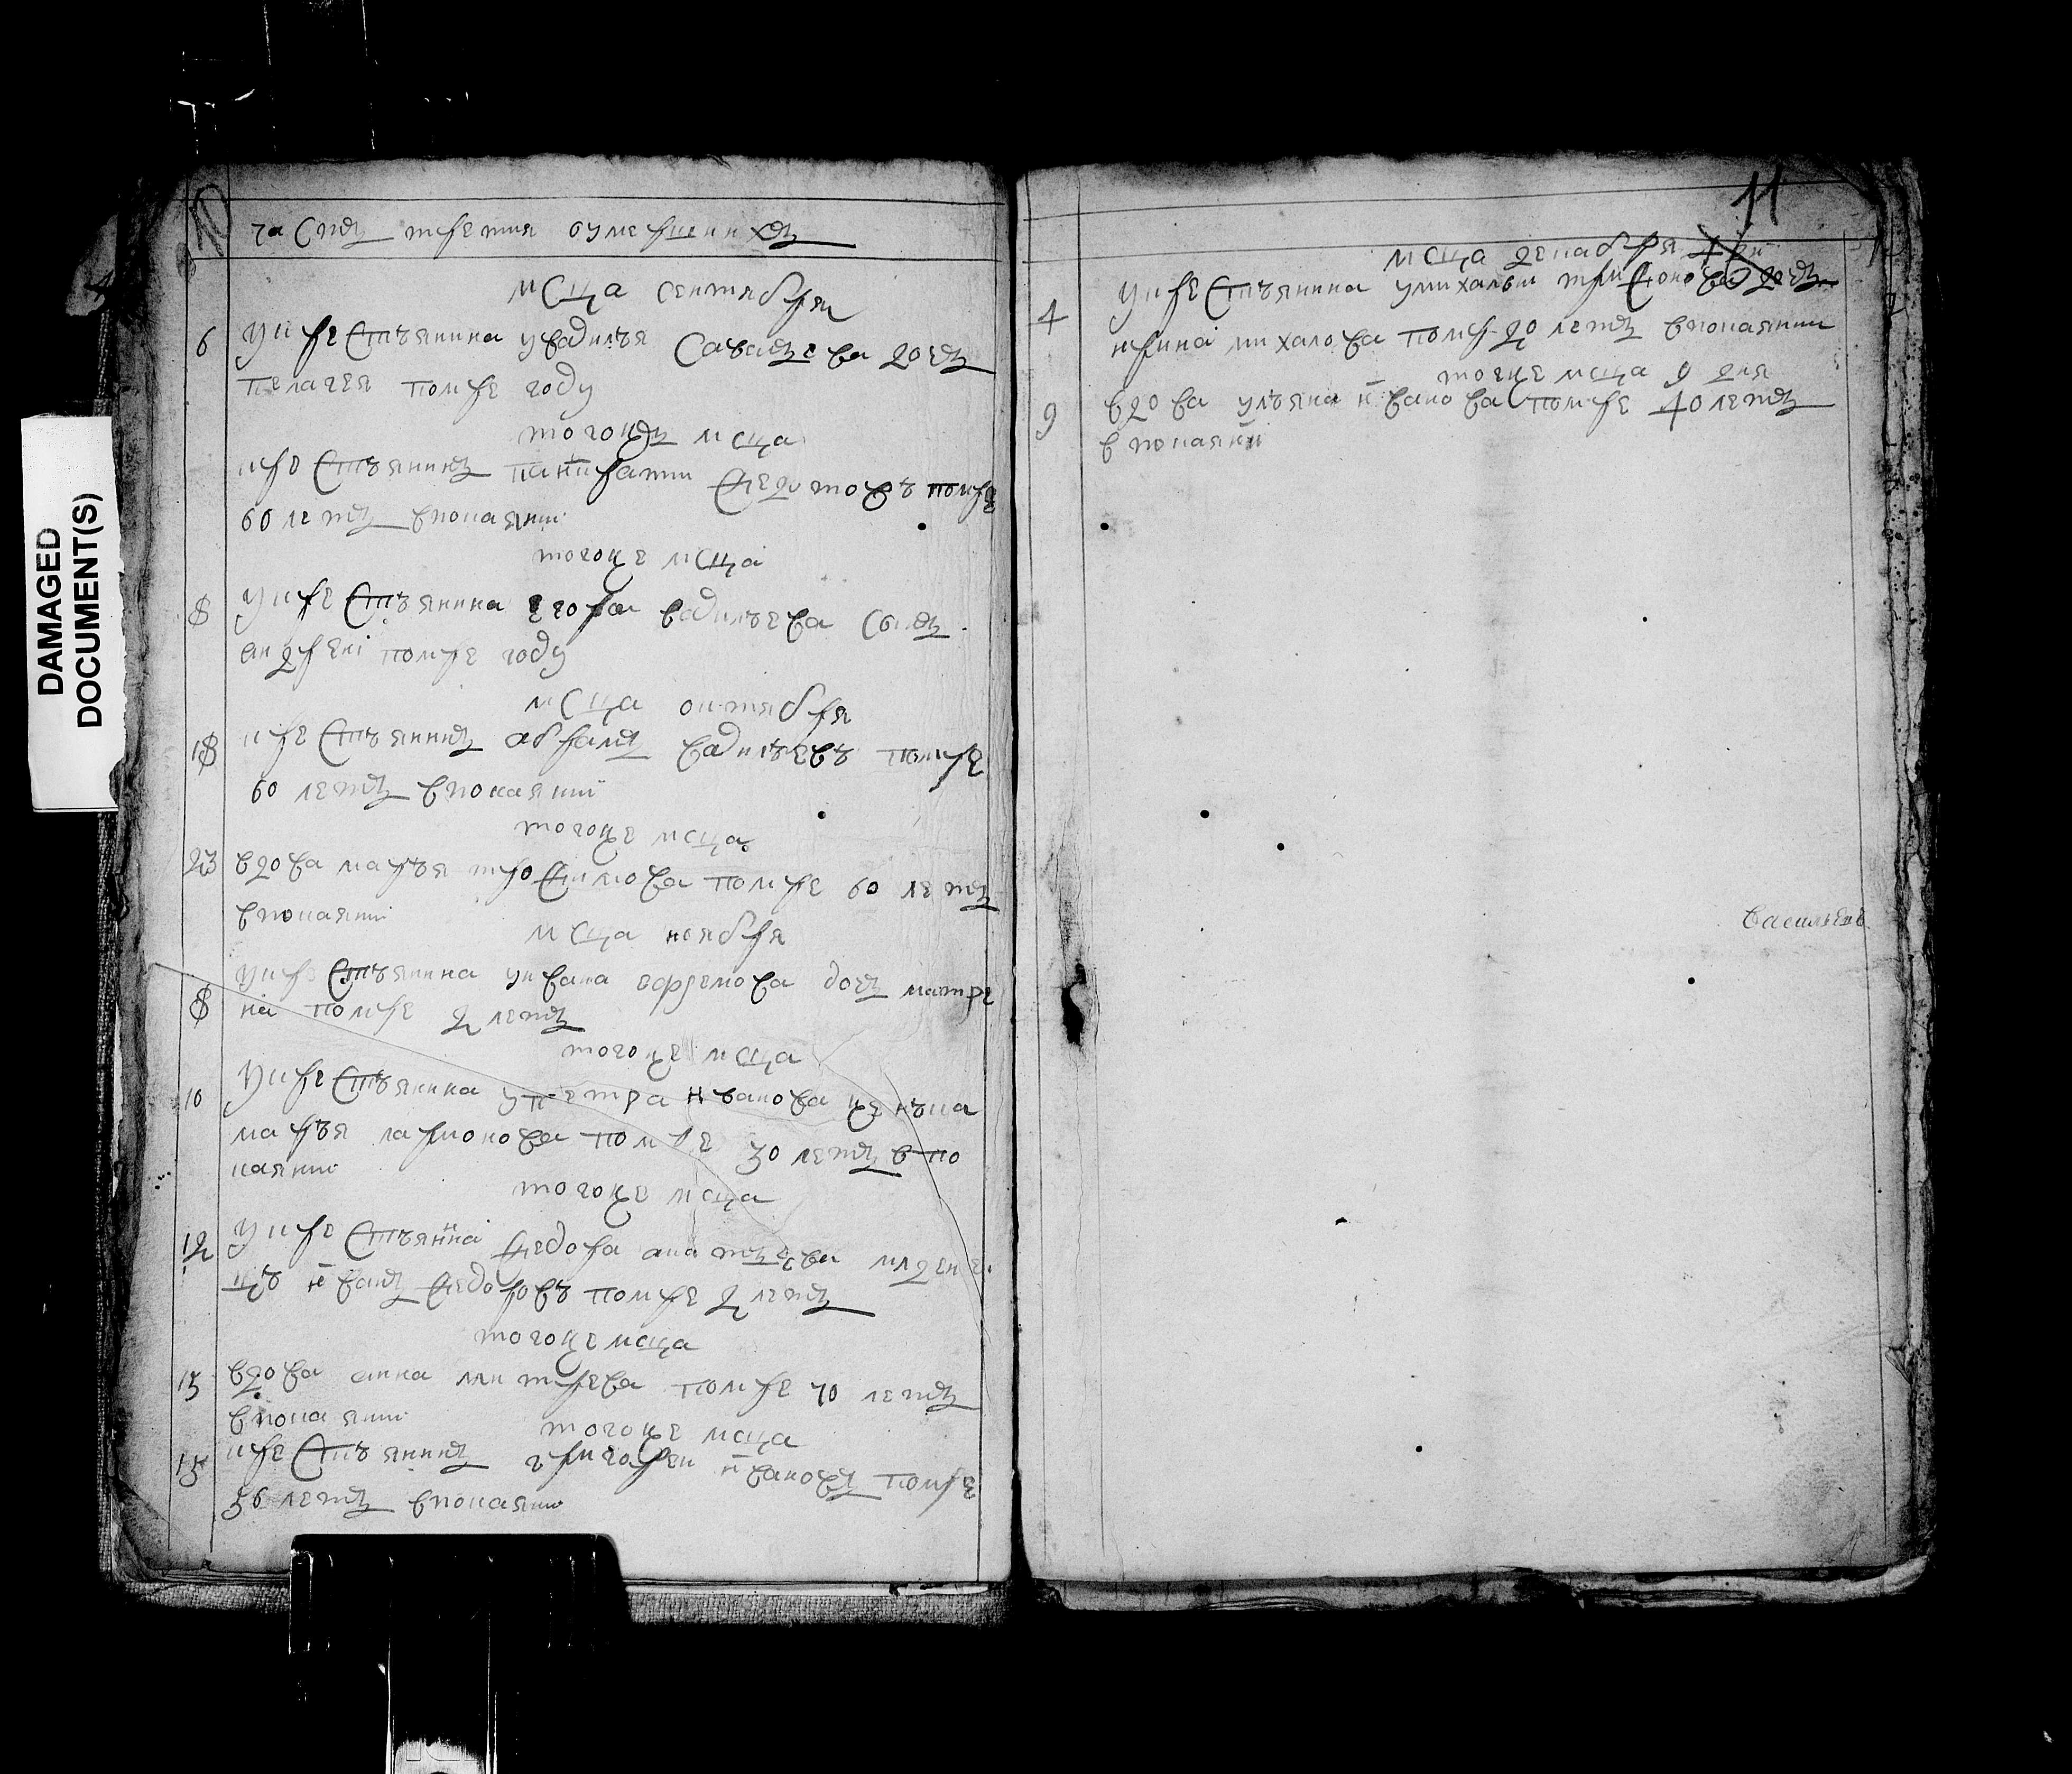 DAMAGED
DOCUMENT(S)
10
часть третия оумершихъ
мсца сентября
6 у крестьянина у василья савастева дочь
пелагея помре году
тогожъ мсца
крестьянинъ паникратии федотовъ помре
60 летъ в покаянии
тогоже мсца
8 у крестьянина егора васильева сынъ
андреи помре году
мсца октября
18 крестьянинъ абрамъ васильевъ помре
60 летъ в покаянии
тогоже мсца
23 вдова марья трофимова помре 60 летъ
в покаянии
мсца ноября
у крестьянина у ивана ефремова дочь матре
8 на помре 2 летъ
тогоже мсца
10 у крестьянина у петра иванова жена
марья лармонова помре 30 летъ в по
каянии
тогоже мсца
12 у крестьянина федора младене
цъ иванъ федоровъ помре 2 летъ
тогоже мсца
15 вдова анна дмитрева помре 70 летъ
в покаянии
тогоже мсца
15 крестьянинъ григореи ивановъ помре
56 летъ в покаянии
11
мсца декабря
4 у крестьянина у михаилы трифонова дочь
ирина михалова помре 20 летъ в покаянии
тогоже мсца 9 дня
9 вдова ульяна иванова помре 40 летъ
в покаянии
Васильевъ